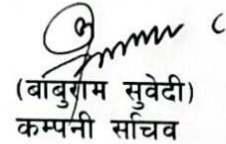 (बाबुराम सुवेदी)
कम्पनी सचिव